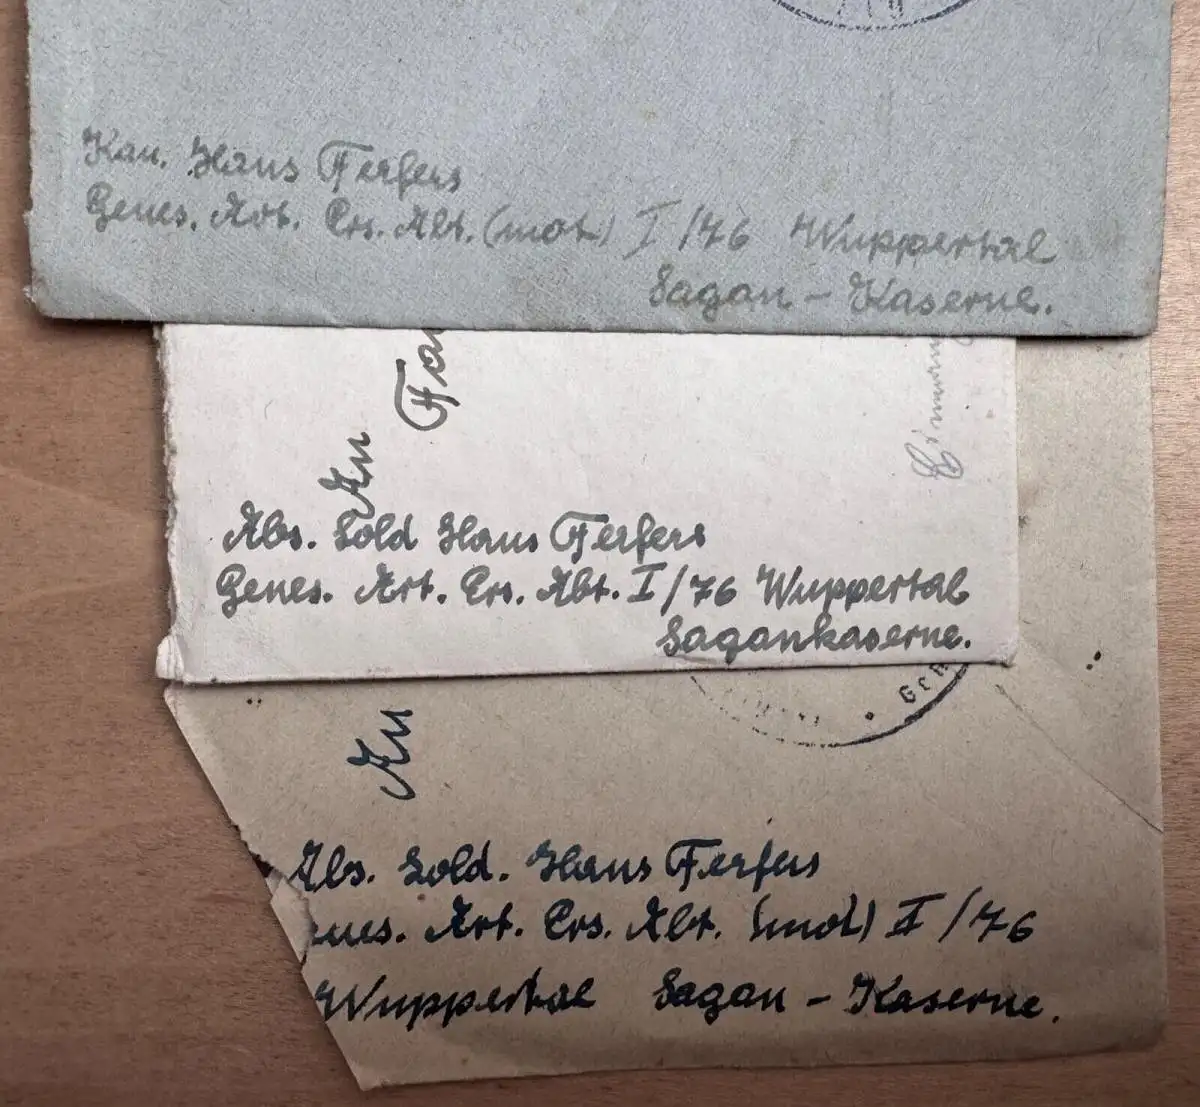 Kan. Hans Ferfers
Genes. Art. Ers. Abt. (mot) I/76 Wuppertal
Sagan - Kaserne.
An
Abs. Sold Hans Ferfers
Genes. Art. Ers. Abt. I/76 Wuppertal
Sagankaserne.
An
Abs. Sold. Hans Ferfers
Art. Ers. Abt. (mot) II/76
Wuppertal Sagan - Kaserne.